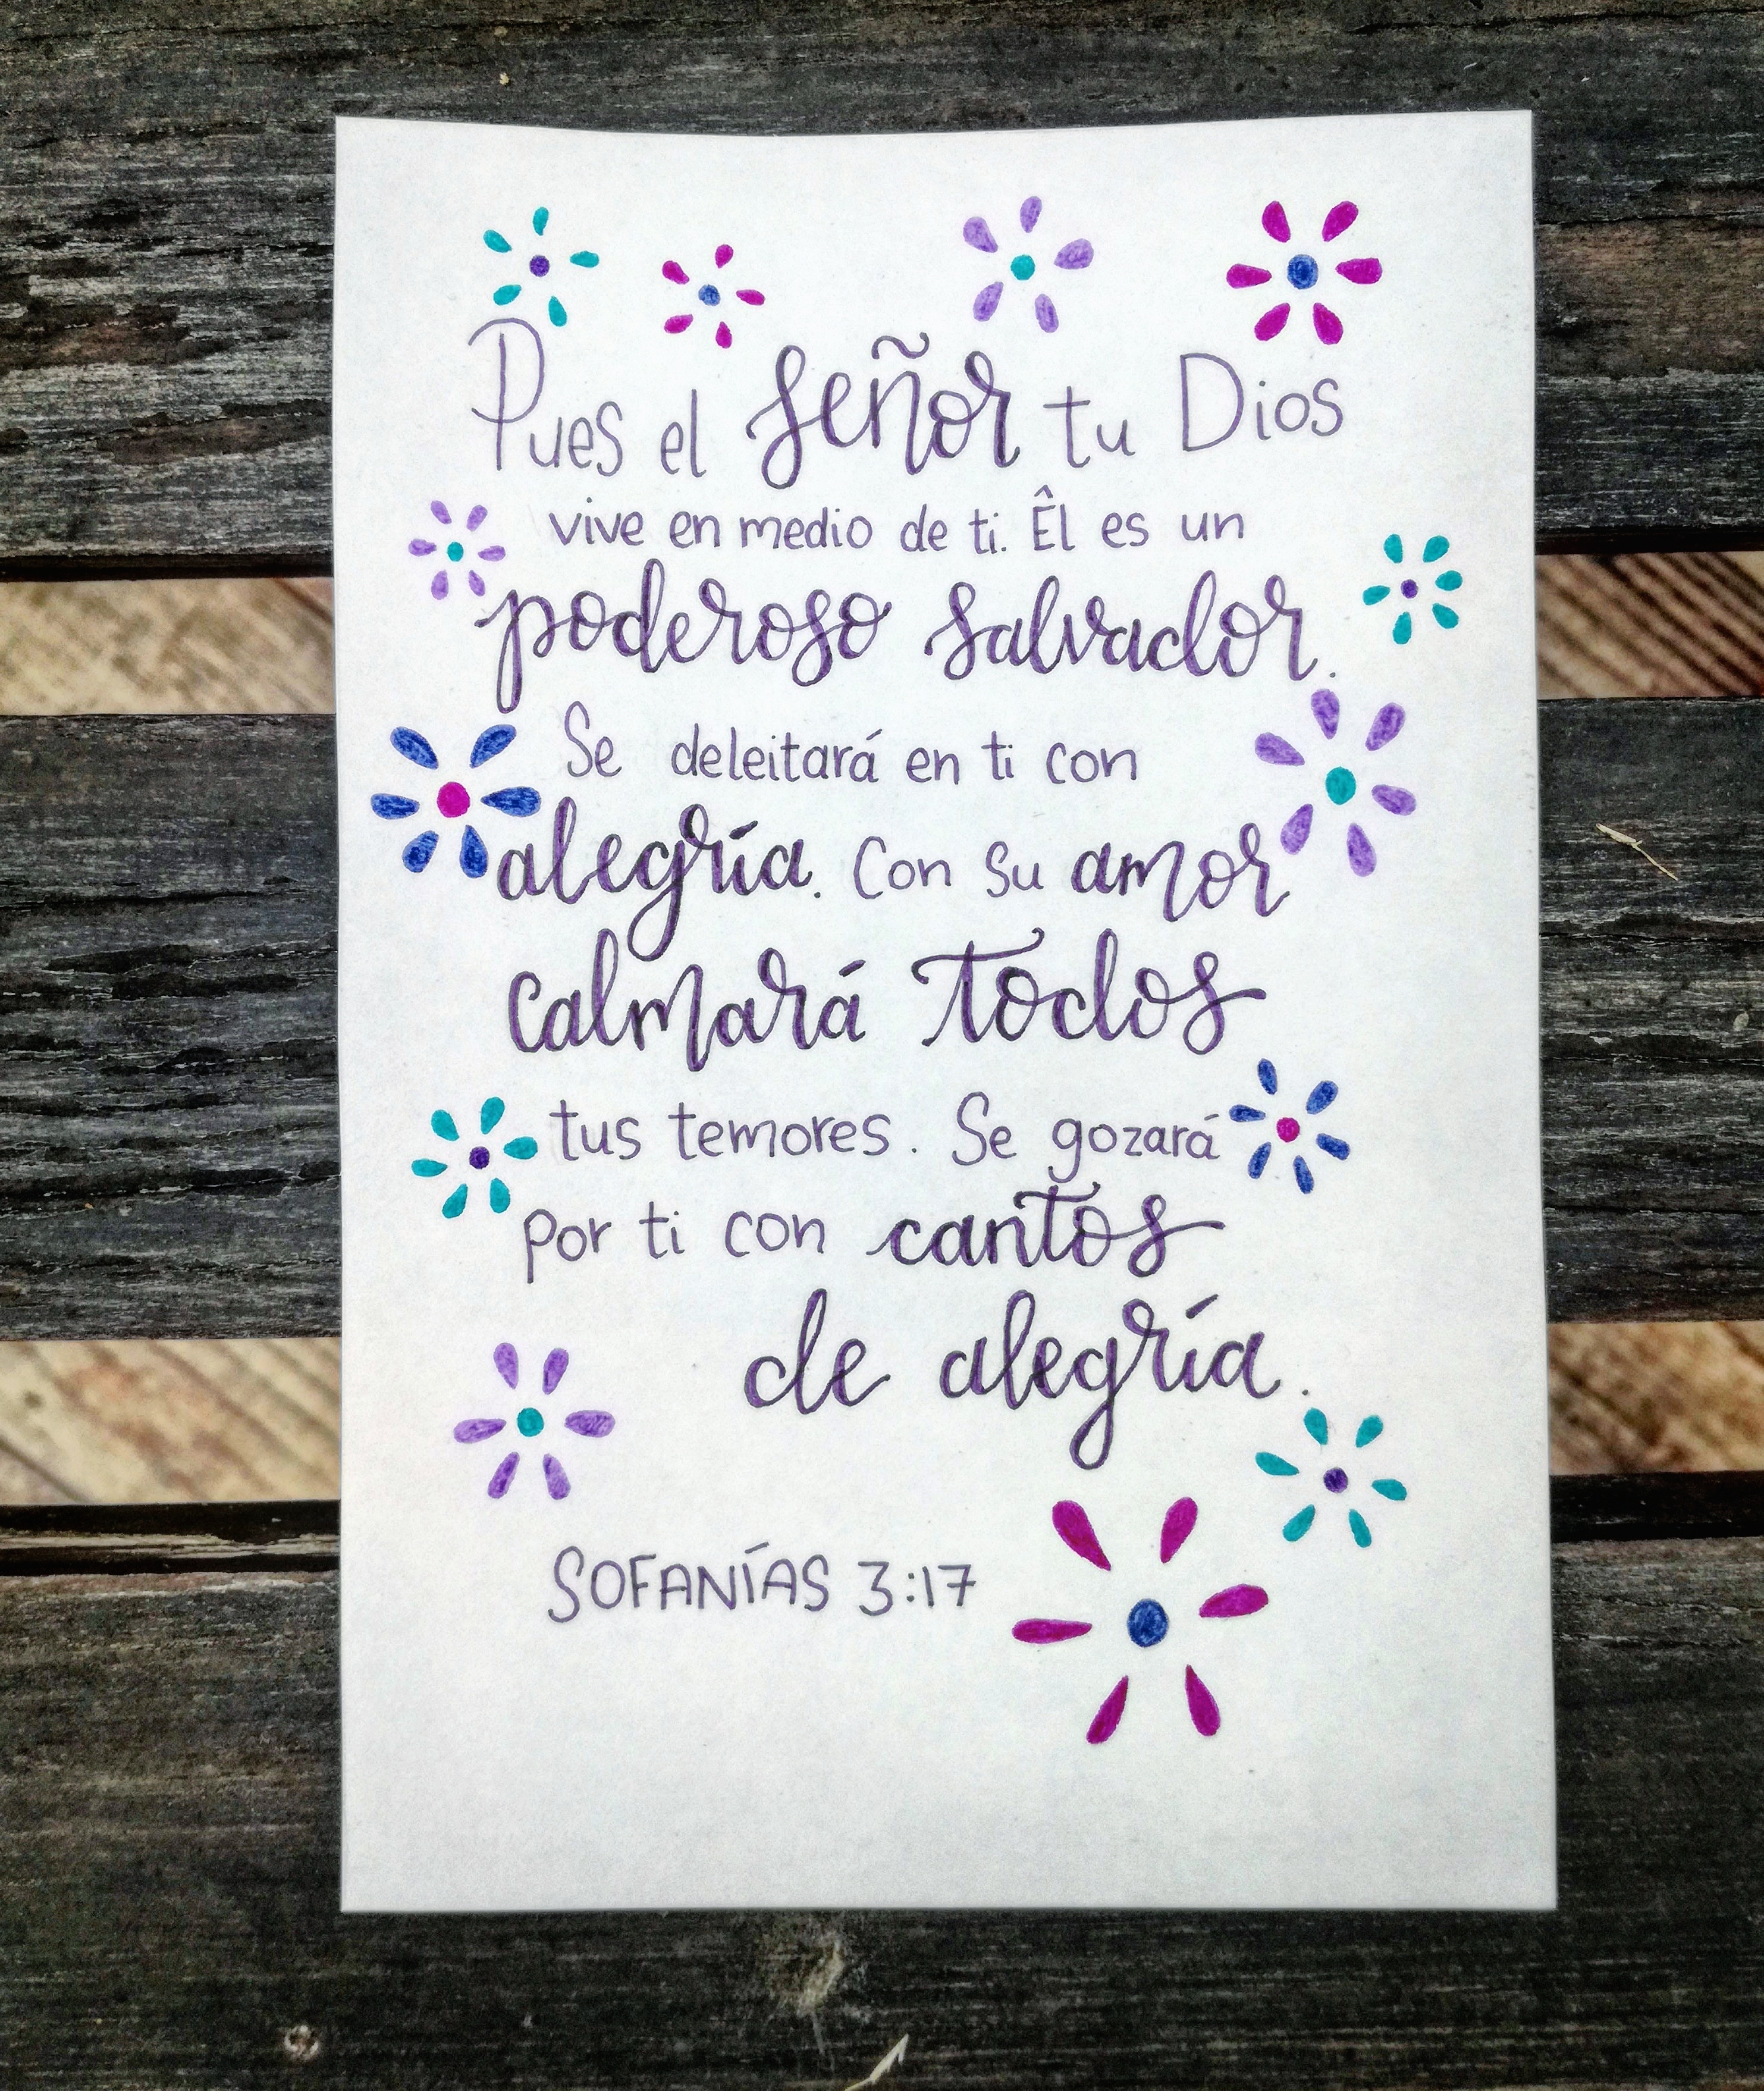 Pues el señor tu Dios
vive en medio de ti. Êl es un
poderoso salvador.
Se deleitará en ti con
alegría. Con su amor
calmará todos
tus temores. Se gozará
por ti con cantos
de alegría.
SOFANÍAS 3:17